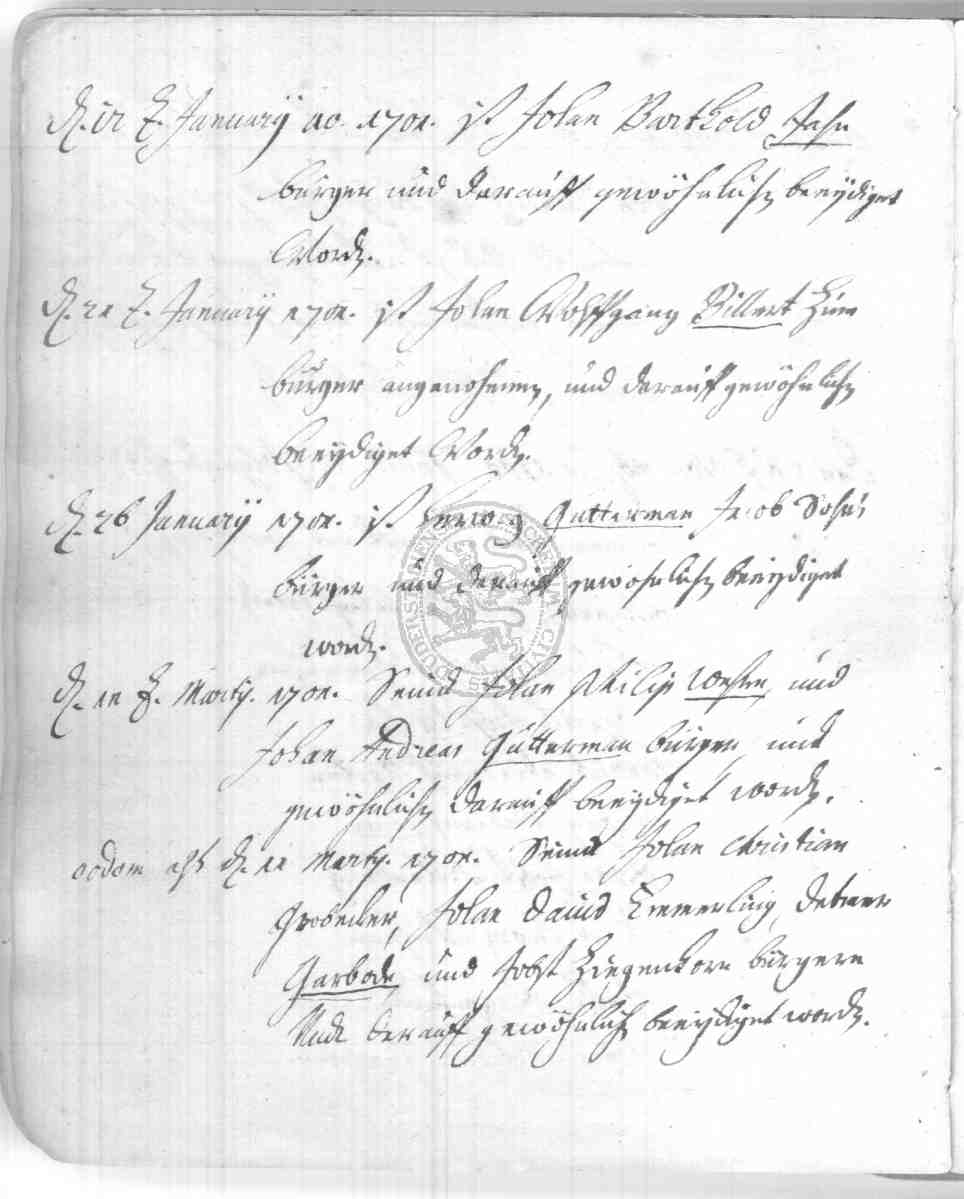 January ao 1701. ist Johan Barthold Jahn
burger und darauff gewöhnlich beeydiget
Word.
January 1701. ist Johan Wolffgang Billert
burger angenohmen, und darauff gewöhnlich
beeydiget Word.
d. 26 January 1701. ist Gutterman Jacob Sohn
burger und darauff gewöhnlich beeydiget
word.
d. 11 Marty. 1701. Seind Johan Philip und
Johan Andreas Gutterman burger und
gewöhnlich darauff beeydiget word.
eodem d. 11 Marty. 1701. Seind Johan Christian
Grobecker, Johan David Emmerling,
Garbode und Jobst Ziegenhorn burgere
Und darauff gewöhnlich beeydiget word.